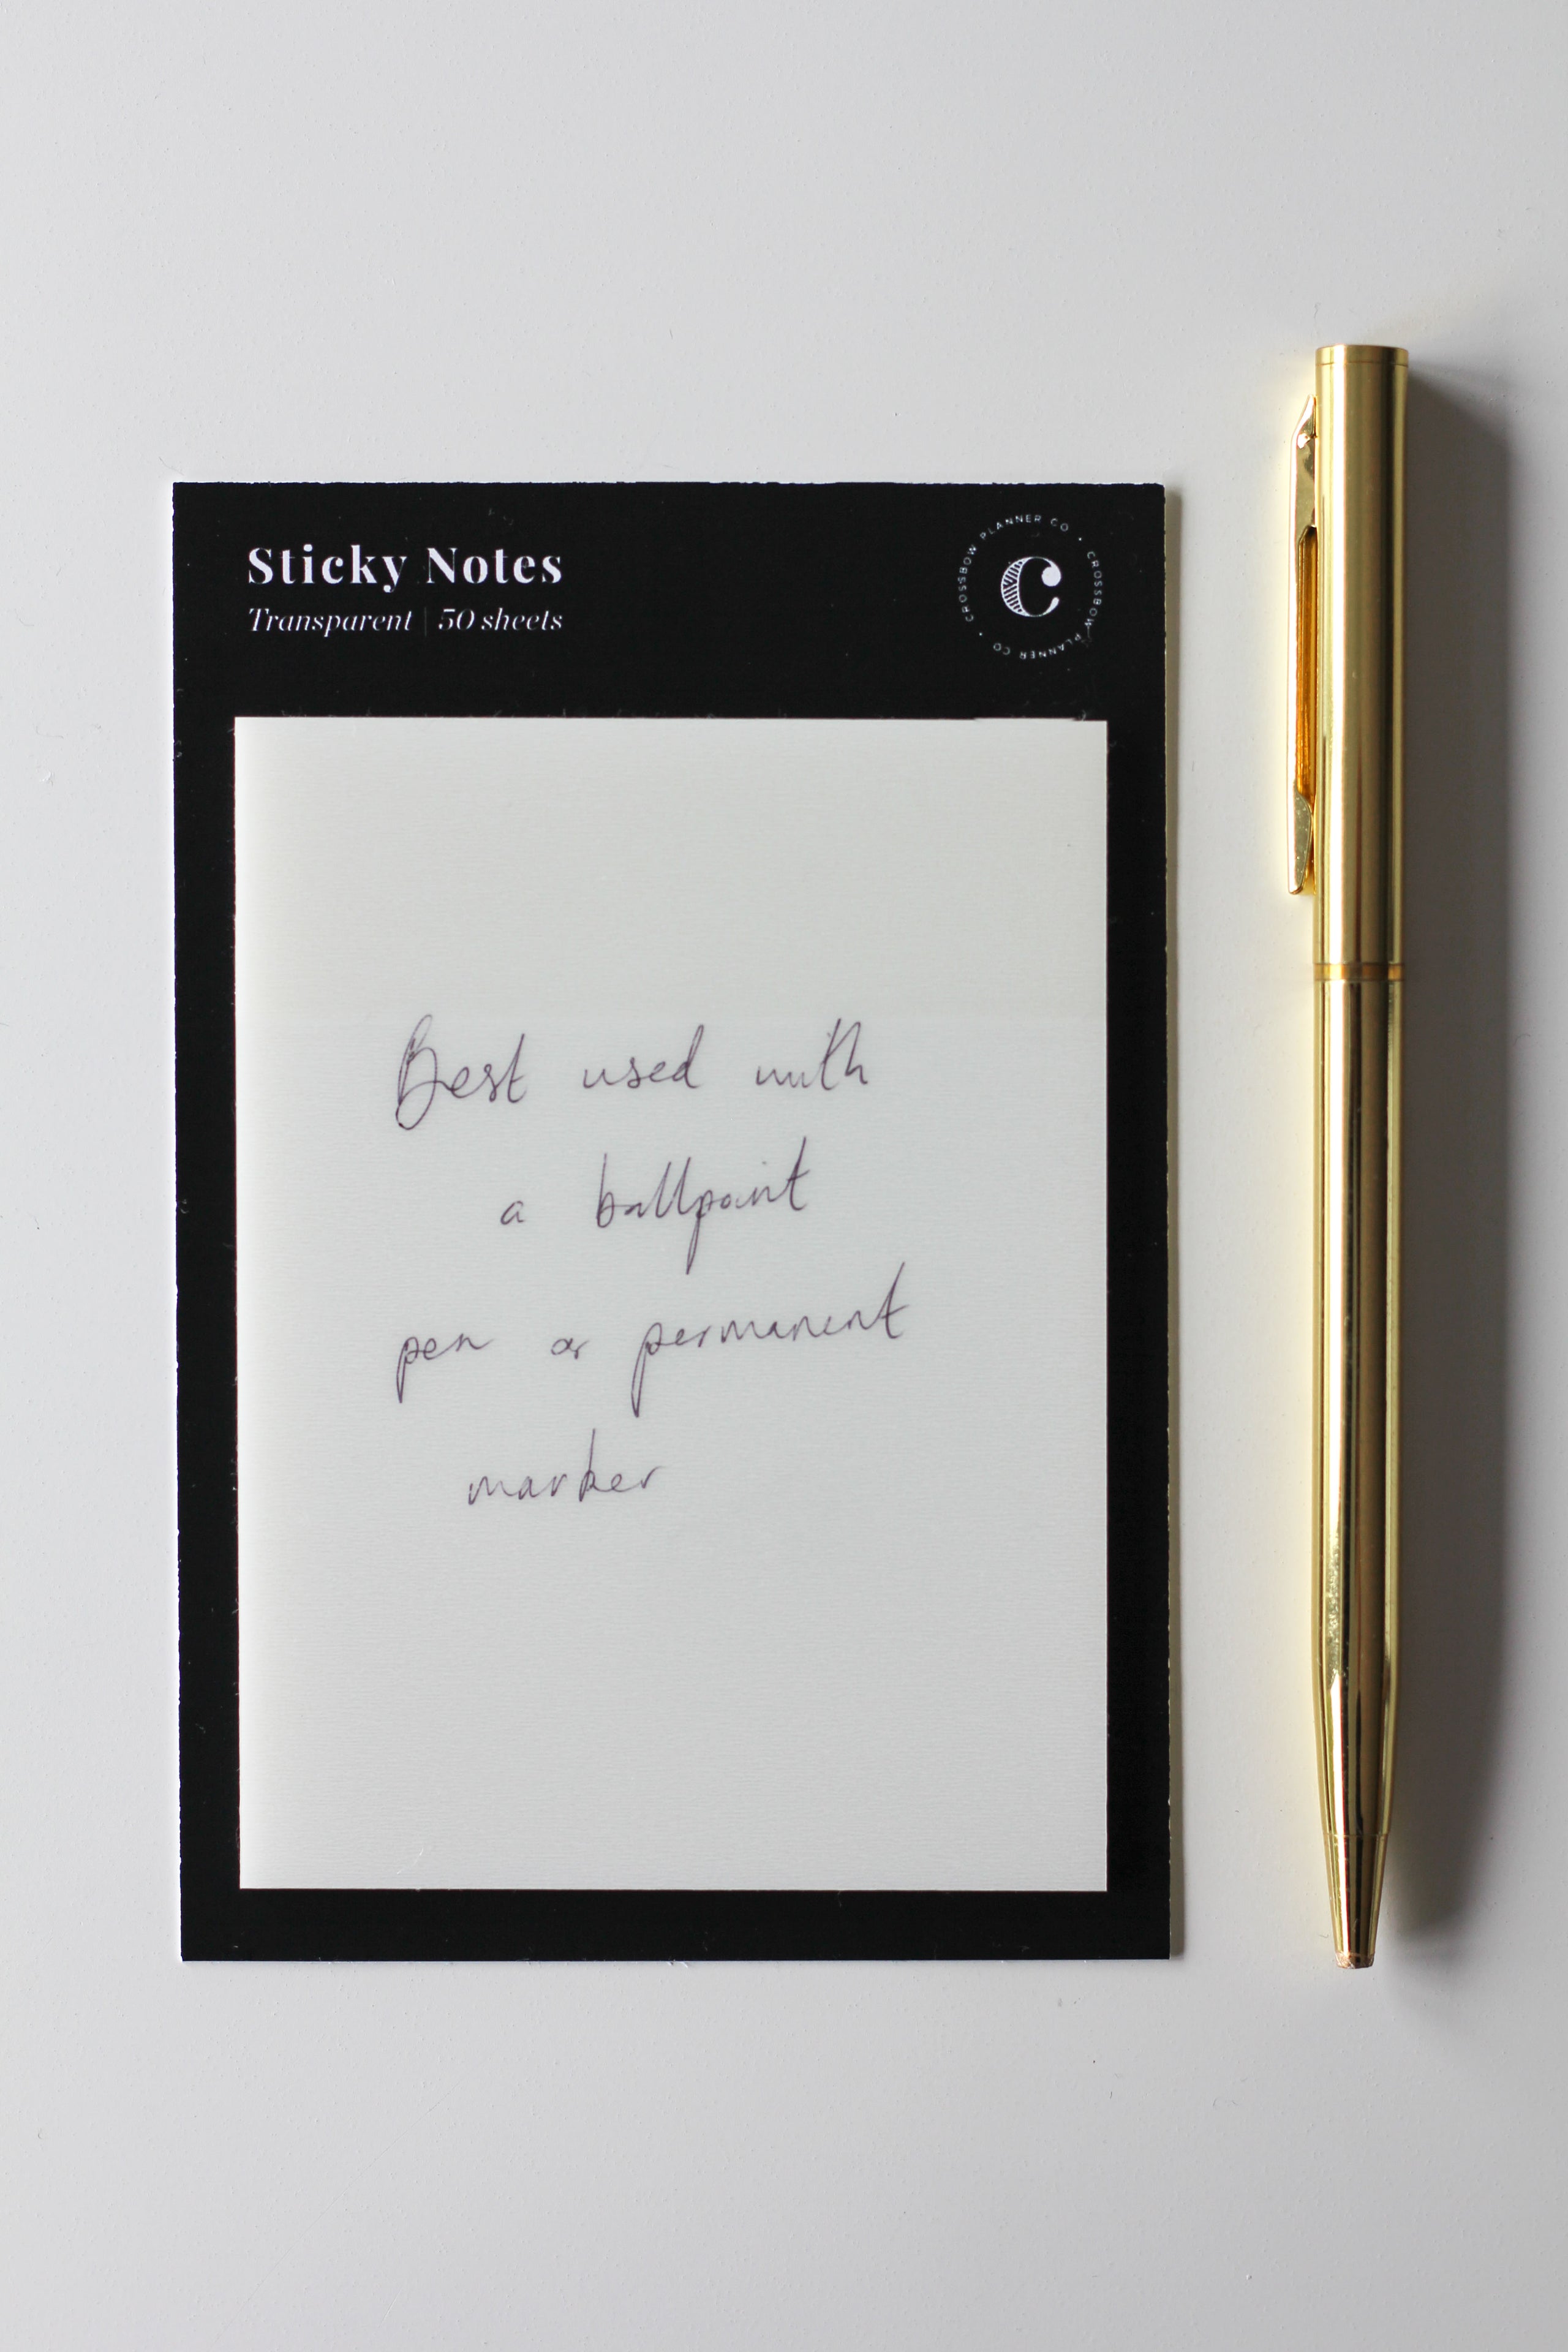 Sticky Notes
Transparent | 50 sheets
CROSSBOW PLANNER CO • CROSSBOW PLANNER CO •
C
Best used with
a ballpoint
pen or permanent
marker